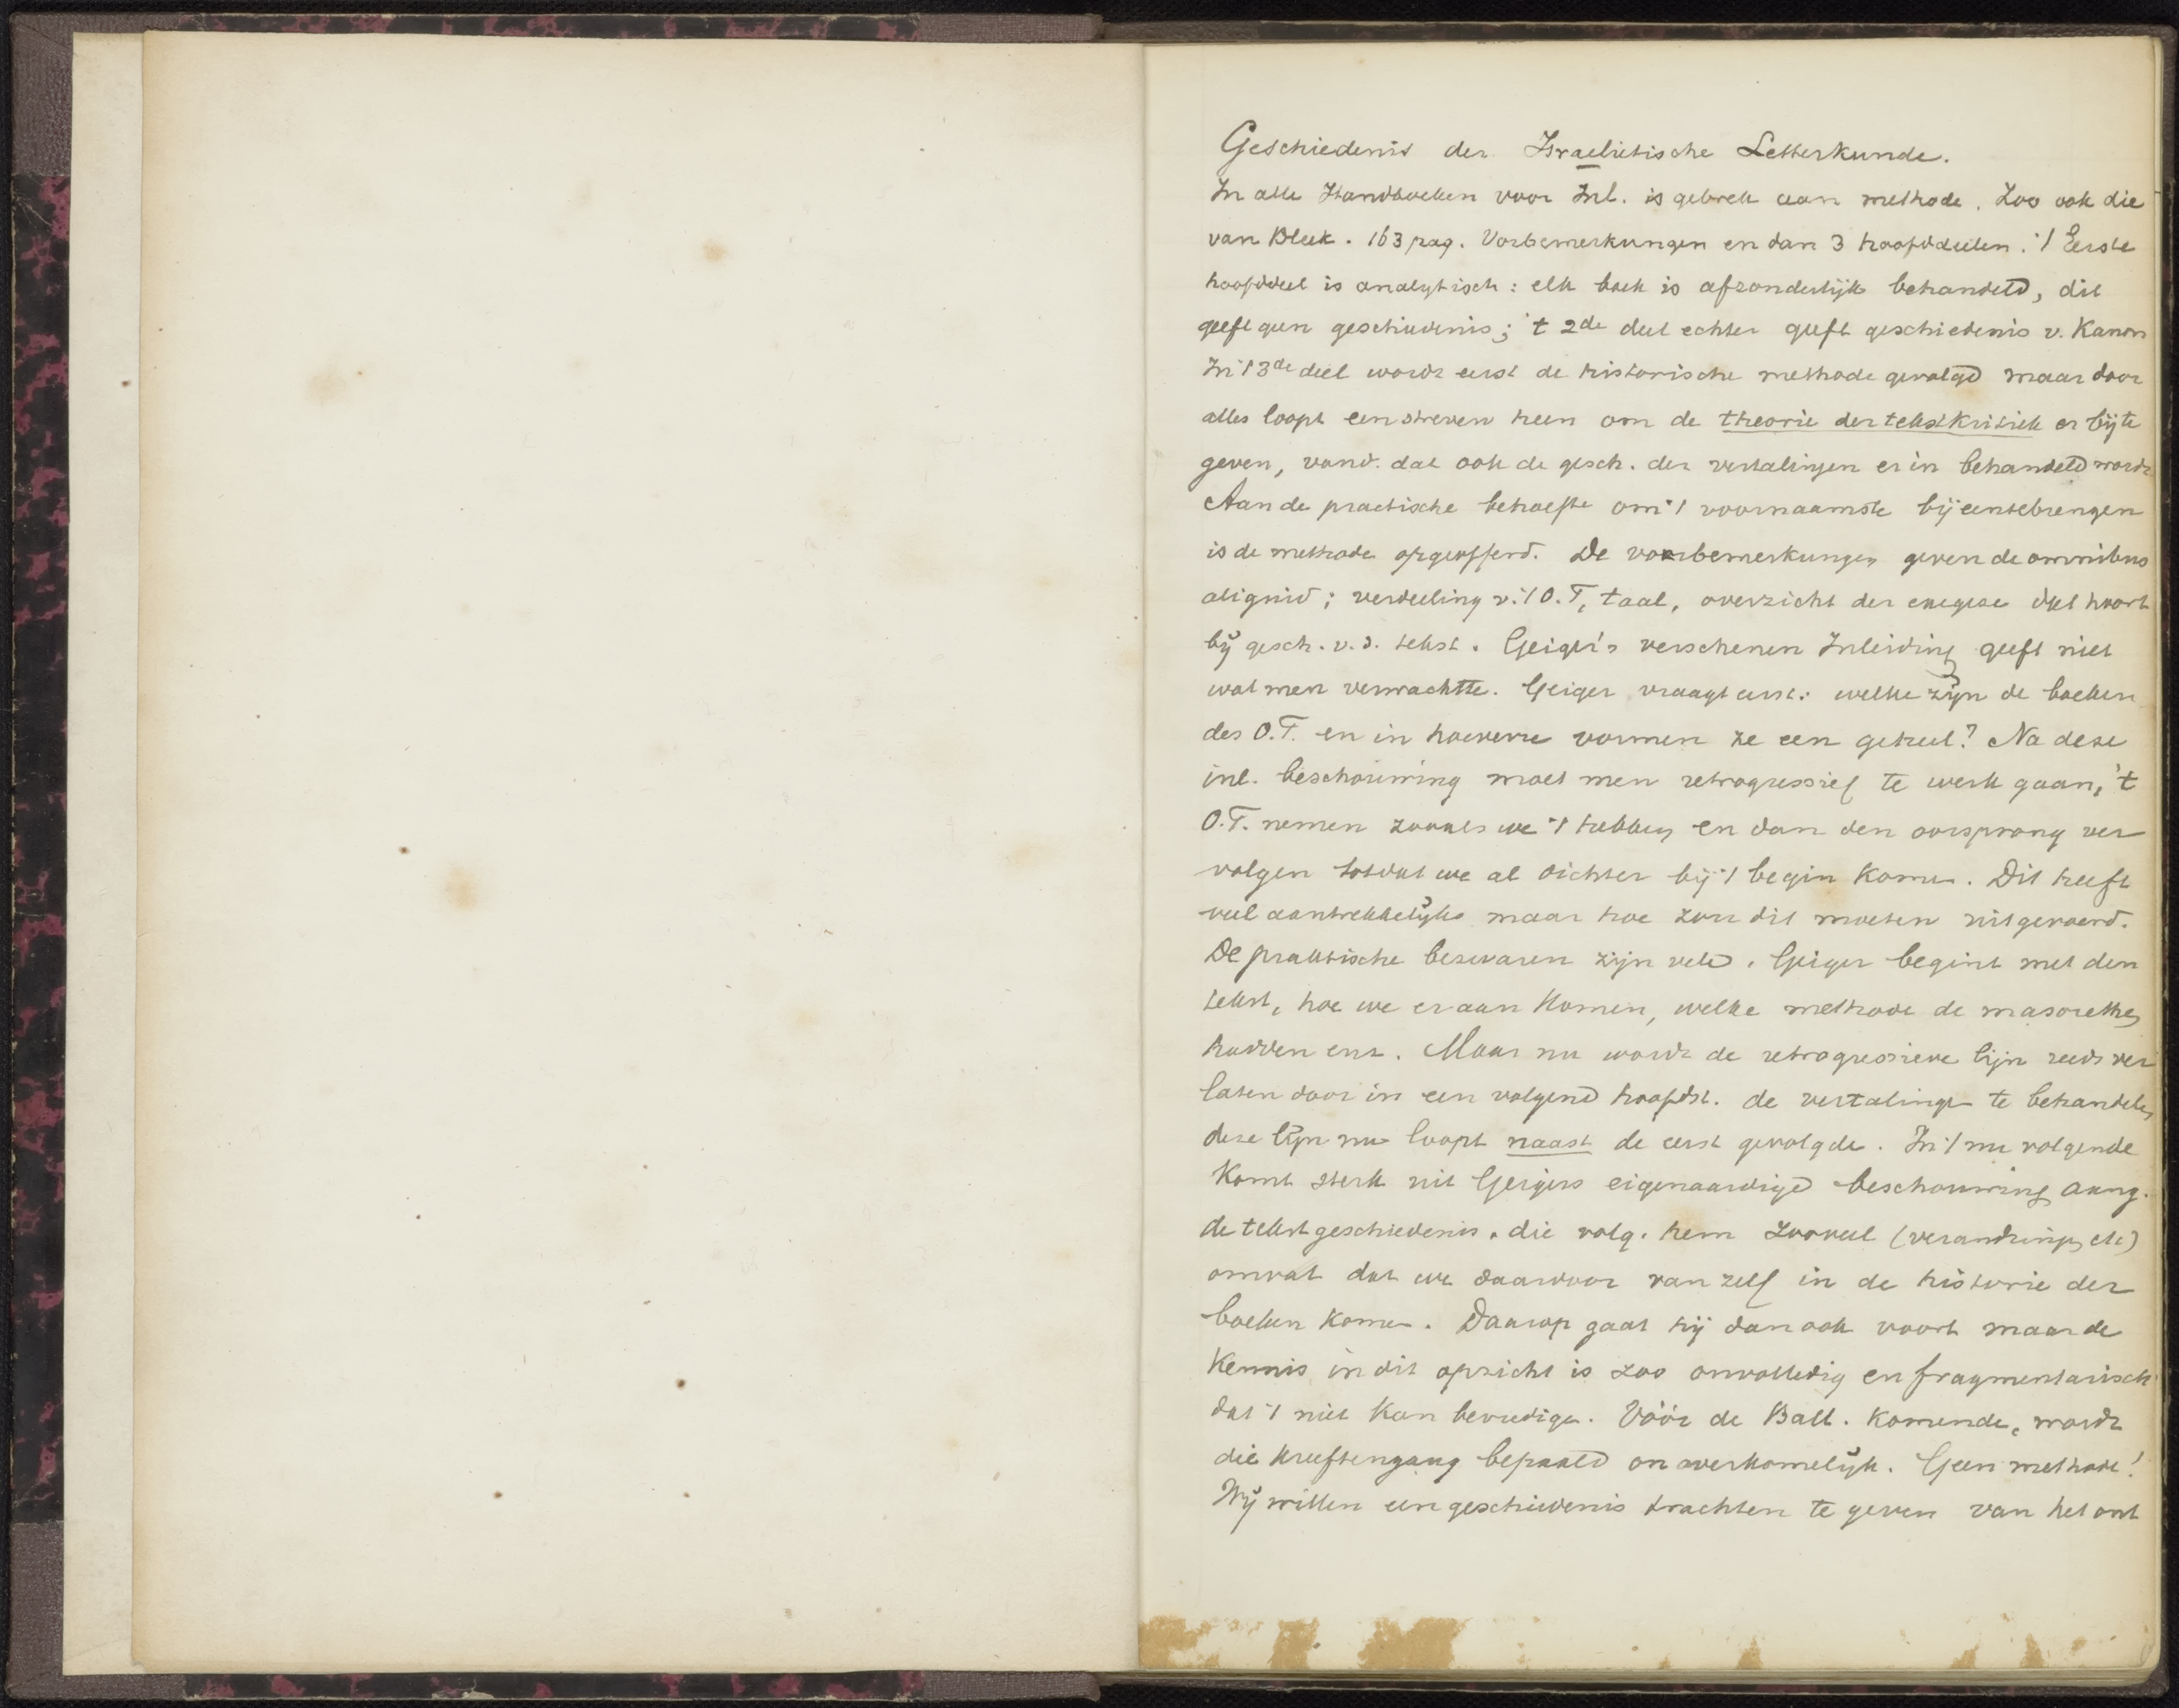 Geschiedenis der Israelietische Letterkunde.
In alle Handboeken voor Inl. is gebrek aan methode. Zoo ook die
van Bleek. 163 pag. Vorbemerkungen en dan 3 hoofddeelen. 't Eerste
hoofddeel is analytisch: elk boek is afzonderlijk behandeld, dit
geeft geen geschiedenis; 't 2de deel echter geeft geschiedenis v. Kanon
In 't 3de deel wordt eerst de historische methode gevolgd maar door
alles loopt een streven heen om de theorie der tekstkritiek er bij te
geven, vand. dat ook de gesch. der vertalingen er in behandeld wordt
Aan de practische behoefte om 't voornaamste bijeentebrengen
is de methode opgeofferd. De vorbemerkungen geven de omnibus
aliquid; verdeeling v. 't O.T, taal, overzicht der exegese dat hoort
bij gesch. v. d. tekst. Geiger's verschenen Inleiding geeft niet
wat men verwachtte. Geiger vraagt eerst: welke zijn de boeken
des O.T. en in hoeverre vormen ze een geheel? Na deze
inl. beschouwing moet men retrogressief te werk gaan, 't
O.T. nemen zooals we 't hebben en dan den oorsprong ver
volgen totdat we al dichter bij 't begin komen. Dit heeft
veel aantrekkelijks maar hoe zou dit moeten uitgevoerd.
De praktische bezwaren zijn vele. Geiger begint met den
tekst, hoe we er aan komen, welke methode de masorethen
hadden enz. Maar nu wordt de retrogressieve lijn reeds ver
laten door in een volgend hoofdst. de vertalingen te behandelen
deze lijn nu loopt naast de eerst gevolgde. In 't nu volgende
komt sterk uit Geigers eigenaardige beschouwing aang.
de tekstgeschiedenis, die volg. hem zooveel (veranderingen etc)
omvat dat we daardoor van zelf in de historie der
boeken komen. Daarop gaat hij dan ook voort maar de
kennis in dit opzicht is zoo onvolledig en fragmentarisch
dat 't niet kan bevredigen. Vóór de Ball. komende, wordt
die kreeftengang bepaald onoverkomelijk. Geen methode!
Wij willen een geschiedenis trachten te geven van het ont